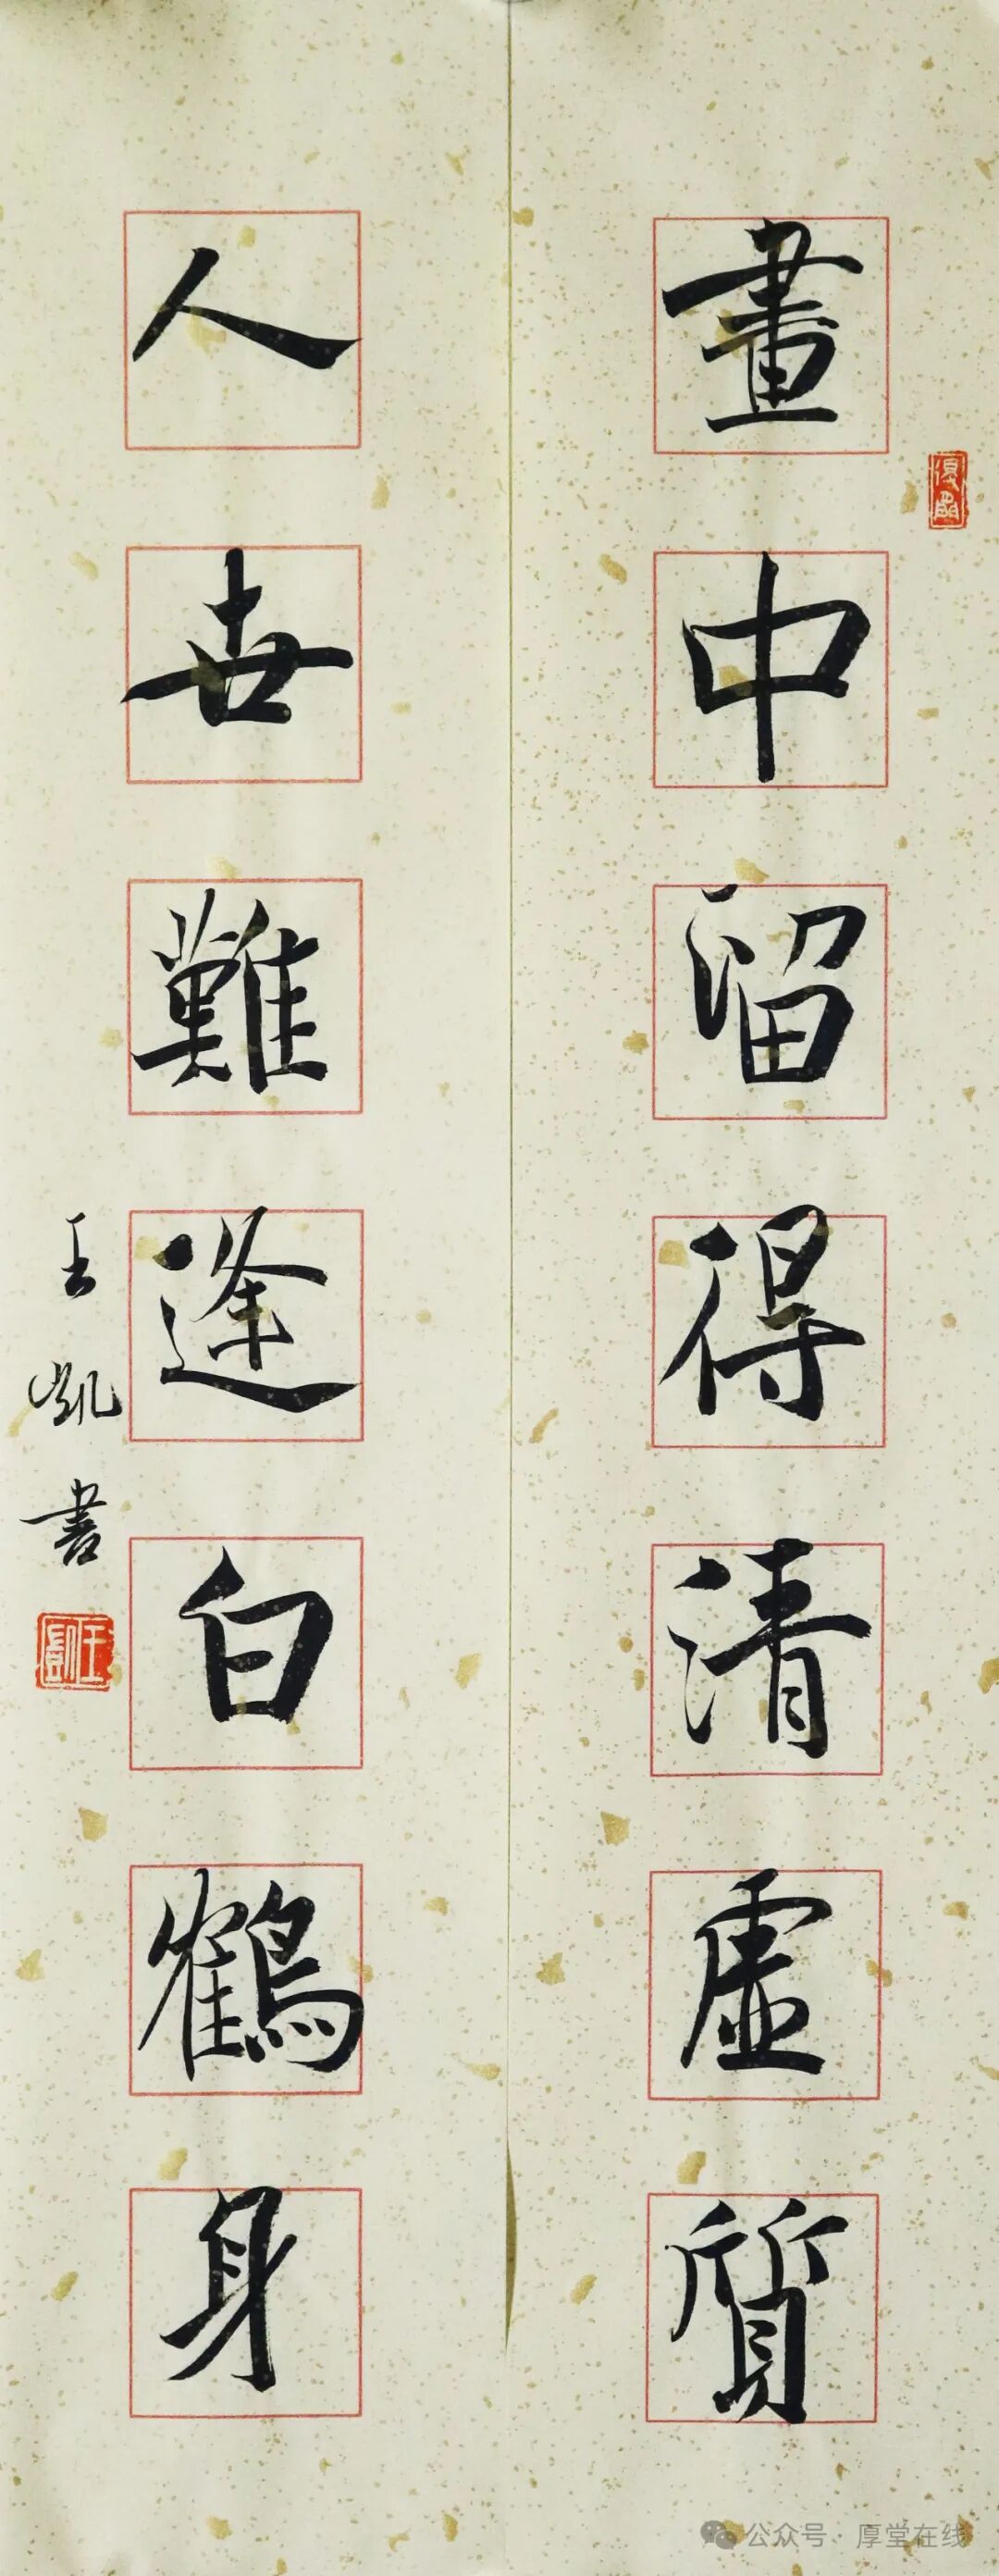 畫中留得清虛質
人世難逢白鶴身
王凱書
公众号·厚堂在线